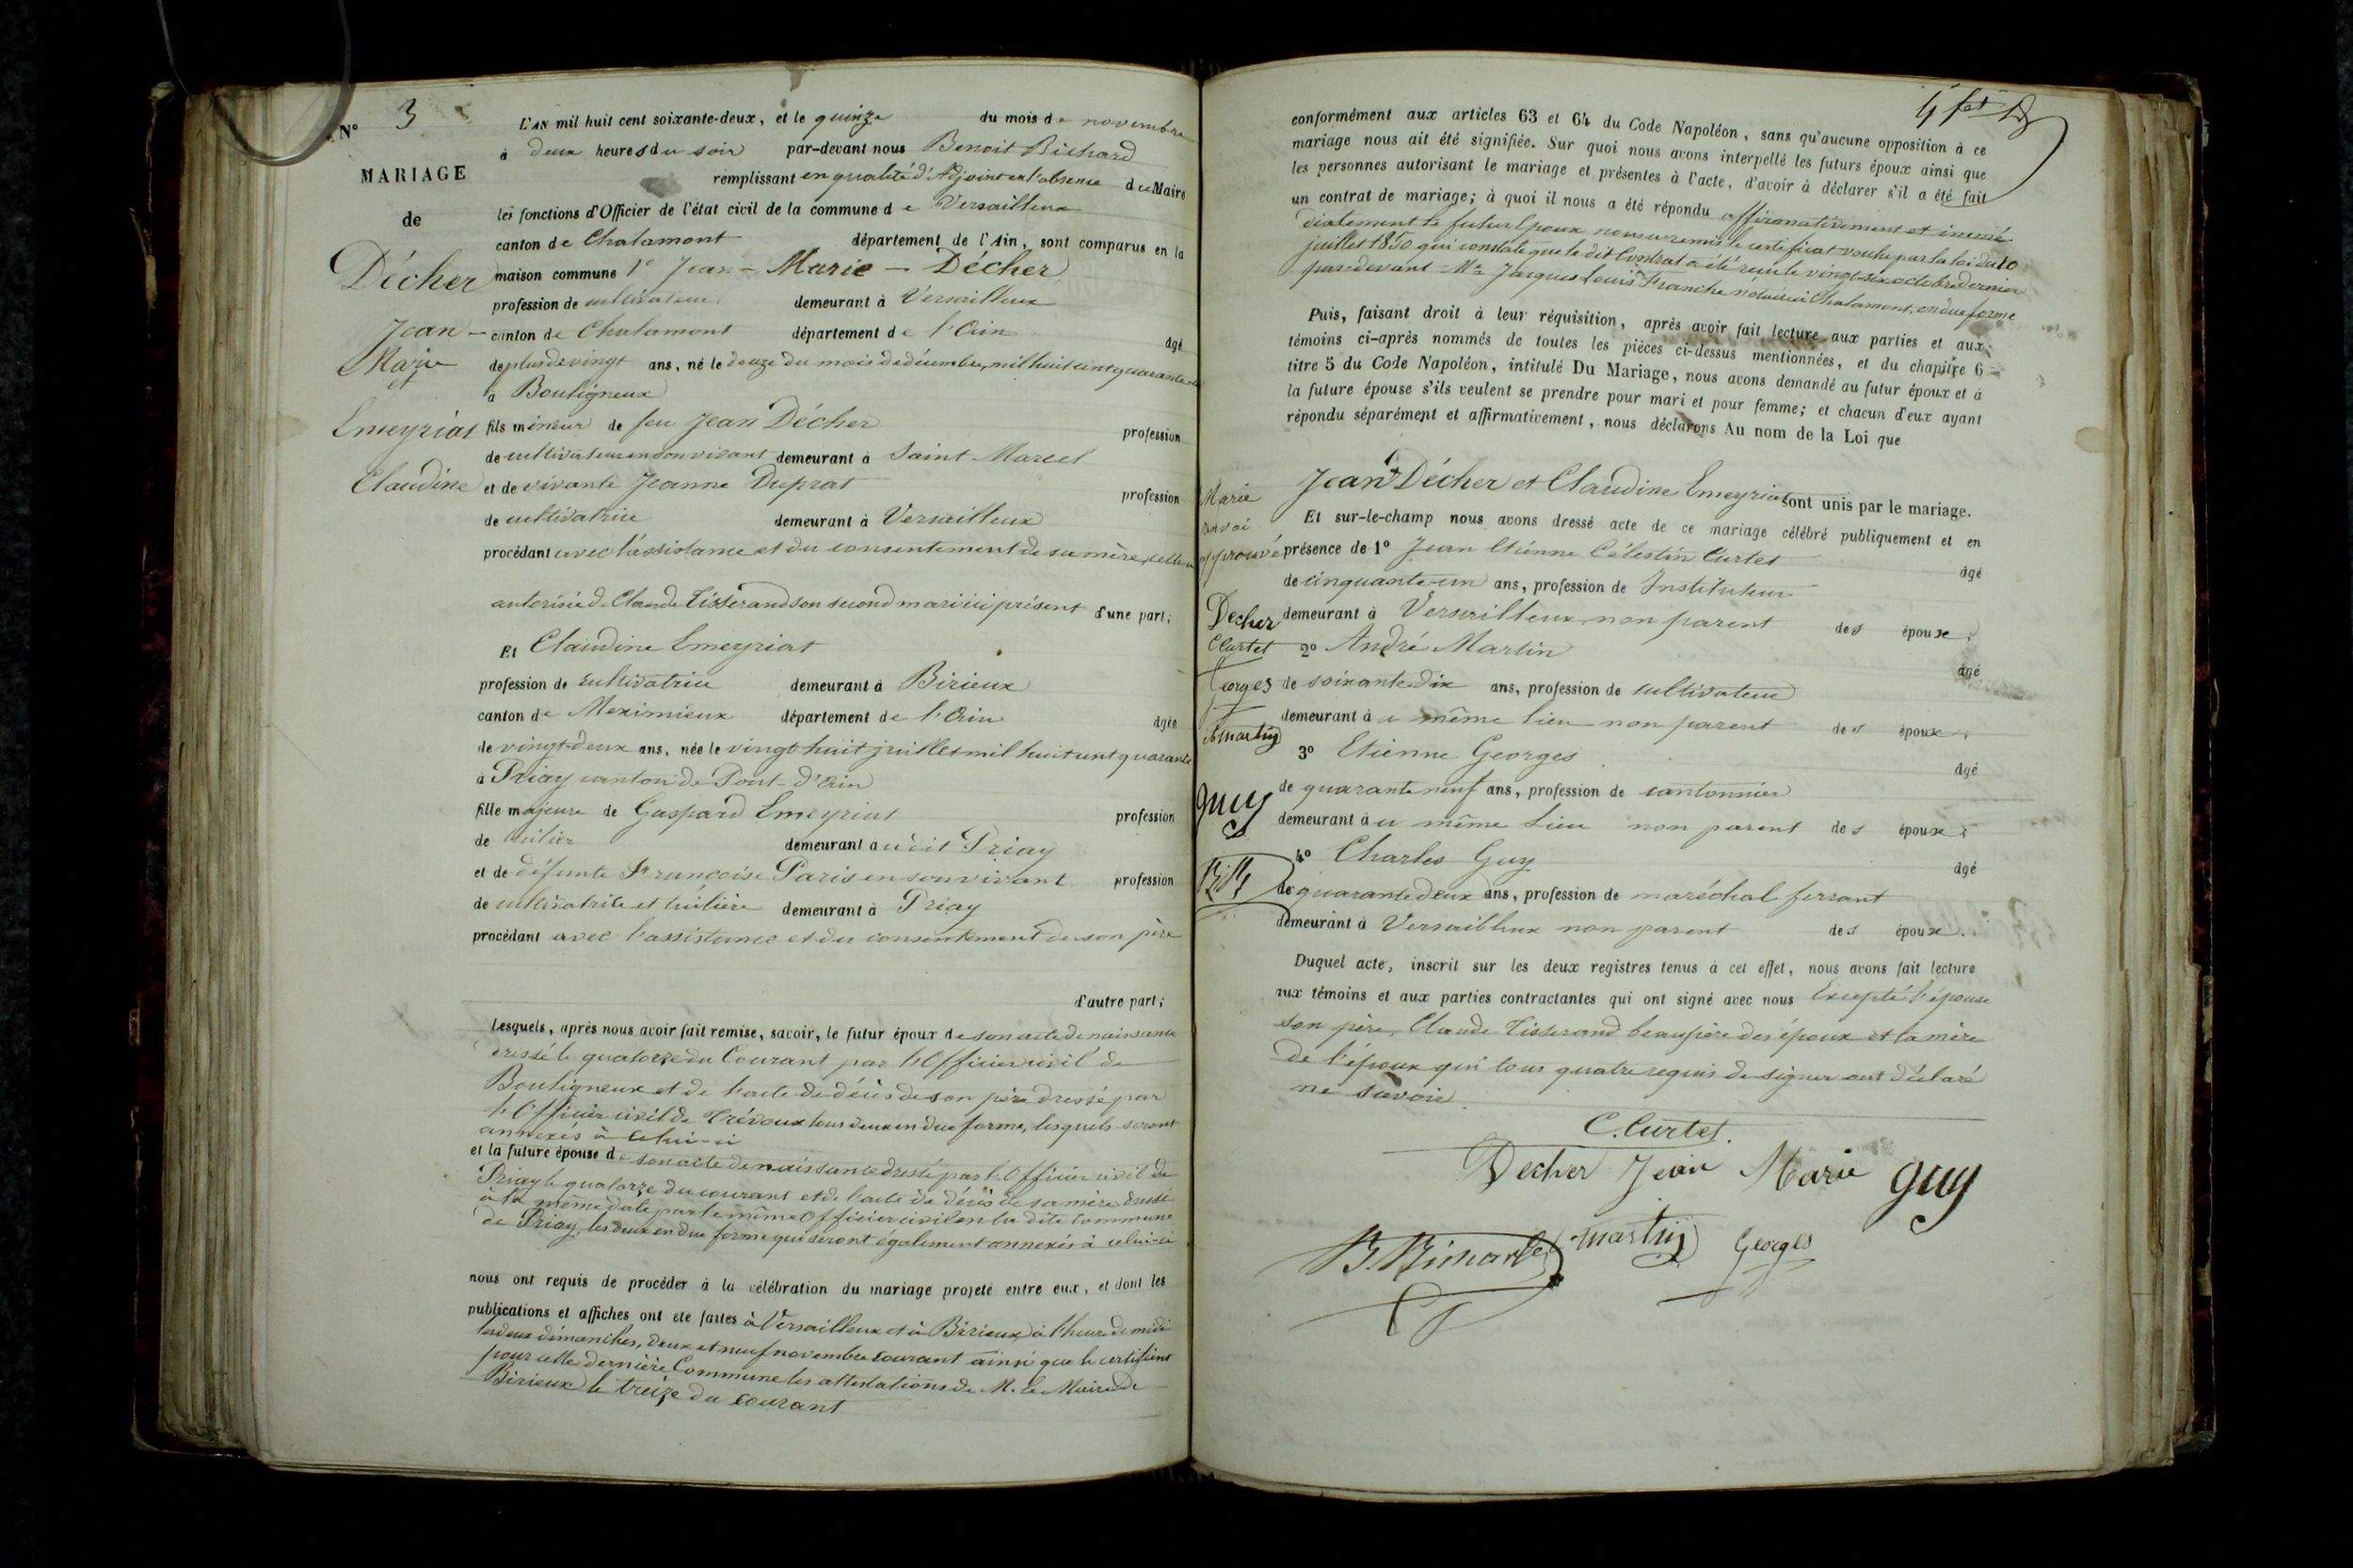 N° 3
MARIAGE
de
Décher
Jean-
Marie
et
Emeyriat
Claudine
L'AN mil huit cent soixante-deux, et le quinze du mois de novembre
à deux heures du soir par-devant nous Benoit Bichard
remplissant en qualité d'Adjoint en l'absence du Maire
les fonctions d'Officier de l'état civil de la commune de Versailleux
canton de Chalamont département de l'Ain, sont comparus en la
maison commune 1° Jean - Marie - Décher
profession de cultivateur demeurant à Versailleux
canton de Chalamont département de l'Ain âgé
de plus de vingt ans, né le douze du mois de décembre, mil huit cent quarante
à Bouligneux
fils mineur de feu Jean Décher profession
de cultivateur en son vivant demeurant à Saint-Marcel
et de vivante Jeanne Duprat profession
de cultivatrice demeurant à Versailleux
procédant avec l'assistance et du consentement de sa mère, celle-ci
autorisée de Claude Tisserand son second mari ici présent d'une part;
Et Claudine Emeyriat
profession de cultivatrice demeurant à Birieux
canton de Meximieux département de l'Ain âgée
de vingt-deux ans, née le vingt huit juillet mil huit cent quarante
à Priay canton de Pont-d'Ain
fille majeure de Gaspard Emeyriat profession
de tuilier demeurant au dit Priay
et de défunte Françoise Paris en son vivant profession
de cultivatrice et tuilière demeurant à Priay
procédant avec l'assistance et du consentement de son père
d'autre part;
Lesquels, après nous avoir fait remise, savoir, le futur époux de son acte de naissance
dressé le quatorze du Courant par l'Officier civil de
Bouligneux et de l'acte de décès de son père dressé par
l'Officier civil de Trévoux tous deux en due forme, lesquels seront
annexés à celui-ci
et la future épouse de son acte de naissance dressé par l'Officier civil de
Priay le quatorze du courant et de l'acte de décès de sa mère dressé
à la même date par le même Officier civil en la dite commune
de Priay, les deux en due forme qui seront également annexés à celui-ci
nous ont requis de procéder à la célébration du mariage projeté entre eux, et dont les
publications et affiches ont été faites à Versailleux et à Birieux à l'heure de midi
les deux dimanches, deux et neuf novembre courant ainsi que le certifient
pour cette dernière Commune les attestations de M. le Maire de
Birieux le treize du courant
conformément aux articles 63 et 64 du Code Napoléon, sans qu'aucune opposition à ce
mariage nous ait été signifiée. Sur quoi nous avons interpellé les futurs époux ainsi que
les personnes autorisant le mariage et présentes à l'acte, d'avoir à déclarer s'il a été fait
un contrat de mariage; à quoi il nous a été répondu affirmativement et immé
diatement le futur Epoux nous a remis le certificat voulu par la loi du 10
juillet 1850 qui constate que le dit Contrat a été reçu le vingt-six octobre dernier
par-devant Me Jacques Louis Franche notaire à Chalamont, en due forme
Puis, faisant droit à leur réquisition, après avoir fait lecture aux parties et aux
témoins ci-après nommés de toutes les pièces ci-dessus mentionnées, et du chapitre 6
titre 5 du Code Napoléon, intitulé Du Mariage, nous avons demandé au futur époux et à
la future épouse s'ils veulent se prendre pour mari et pour femme; et chacun d'eux ayant
répondu séparément et affirmativement, nous déclarons Au nom de la Loi que
Jean Décher et Claudine Emeyriat sont unis par le mariage.
Et sur-le-champ nous avons dressé acte de ce mariage célébré publiquement et en
présence de 1° Jean Etienne Célestin Curtet âgé
de cinquante-un ans, profession de Instituteur
demeurant à Versailleux non parent des époux.
2° André Martin âgé
de soixante-dix ans, profession de cultivateur
demeurant à u même lieu non parent des époux.
3° Etienne Georges âgé
de quarante neuf ans, profession de cantonnier
demeurant à u même lieu non parent des époux;
4° Charles Guy âgé
de quarante deux ans, profession de maréchal ferrant
demeurant à Versailleux non parent des époux.
Duquel acte, inscrit sur les deux registres tenus à cet effet, nous avons fait lecture
aux témoins et aux parties contractantes qui ont signé avec nous Excepté l'épouse
son père, Claude Tisserand beau père des époux et la mère
de l'époux qui tous quatre requis de signer ont déclaré
ne savoir
Marie
renvoi
approuvé
Decher
C Curtet
Georges
Martin
guy
C. Curtet.
Decher Jean Marie guy
B. Bichard Martin Georges